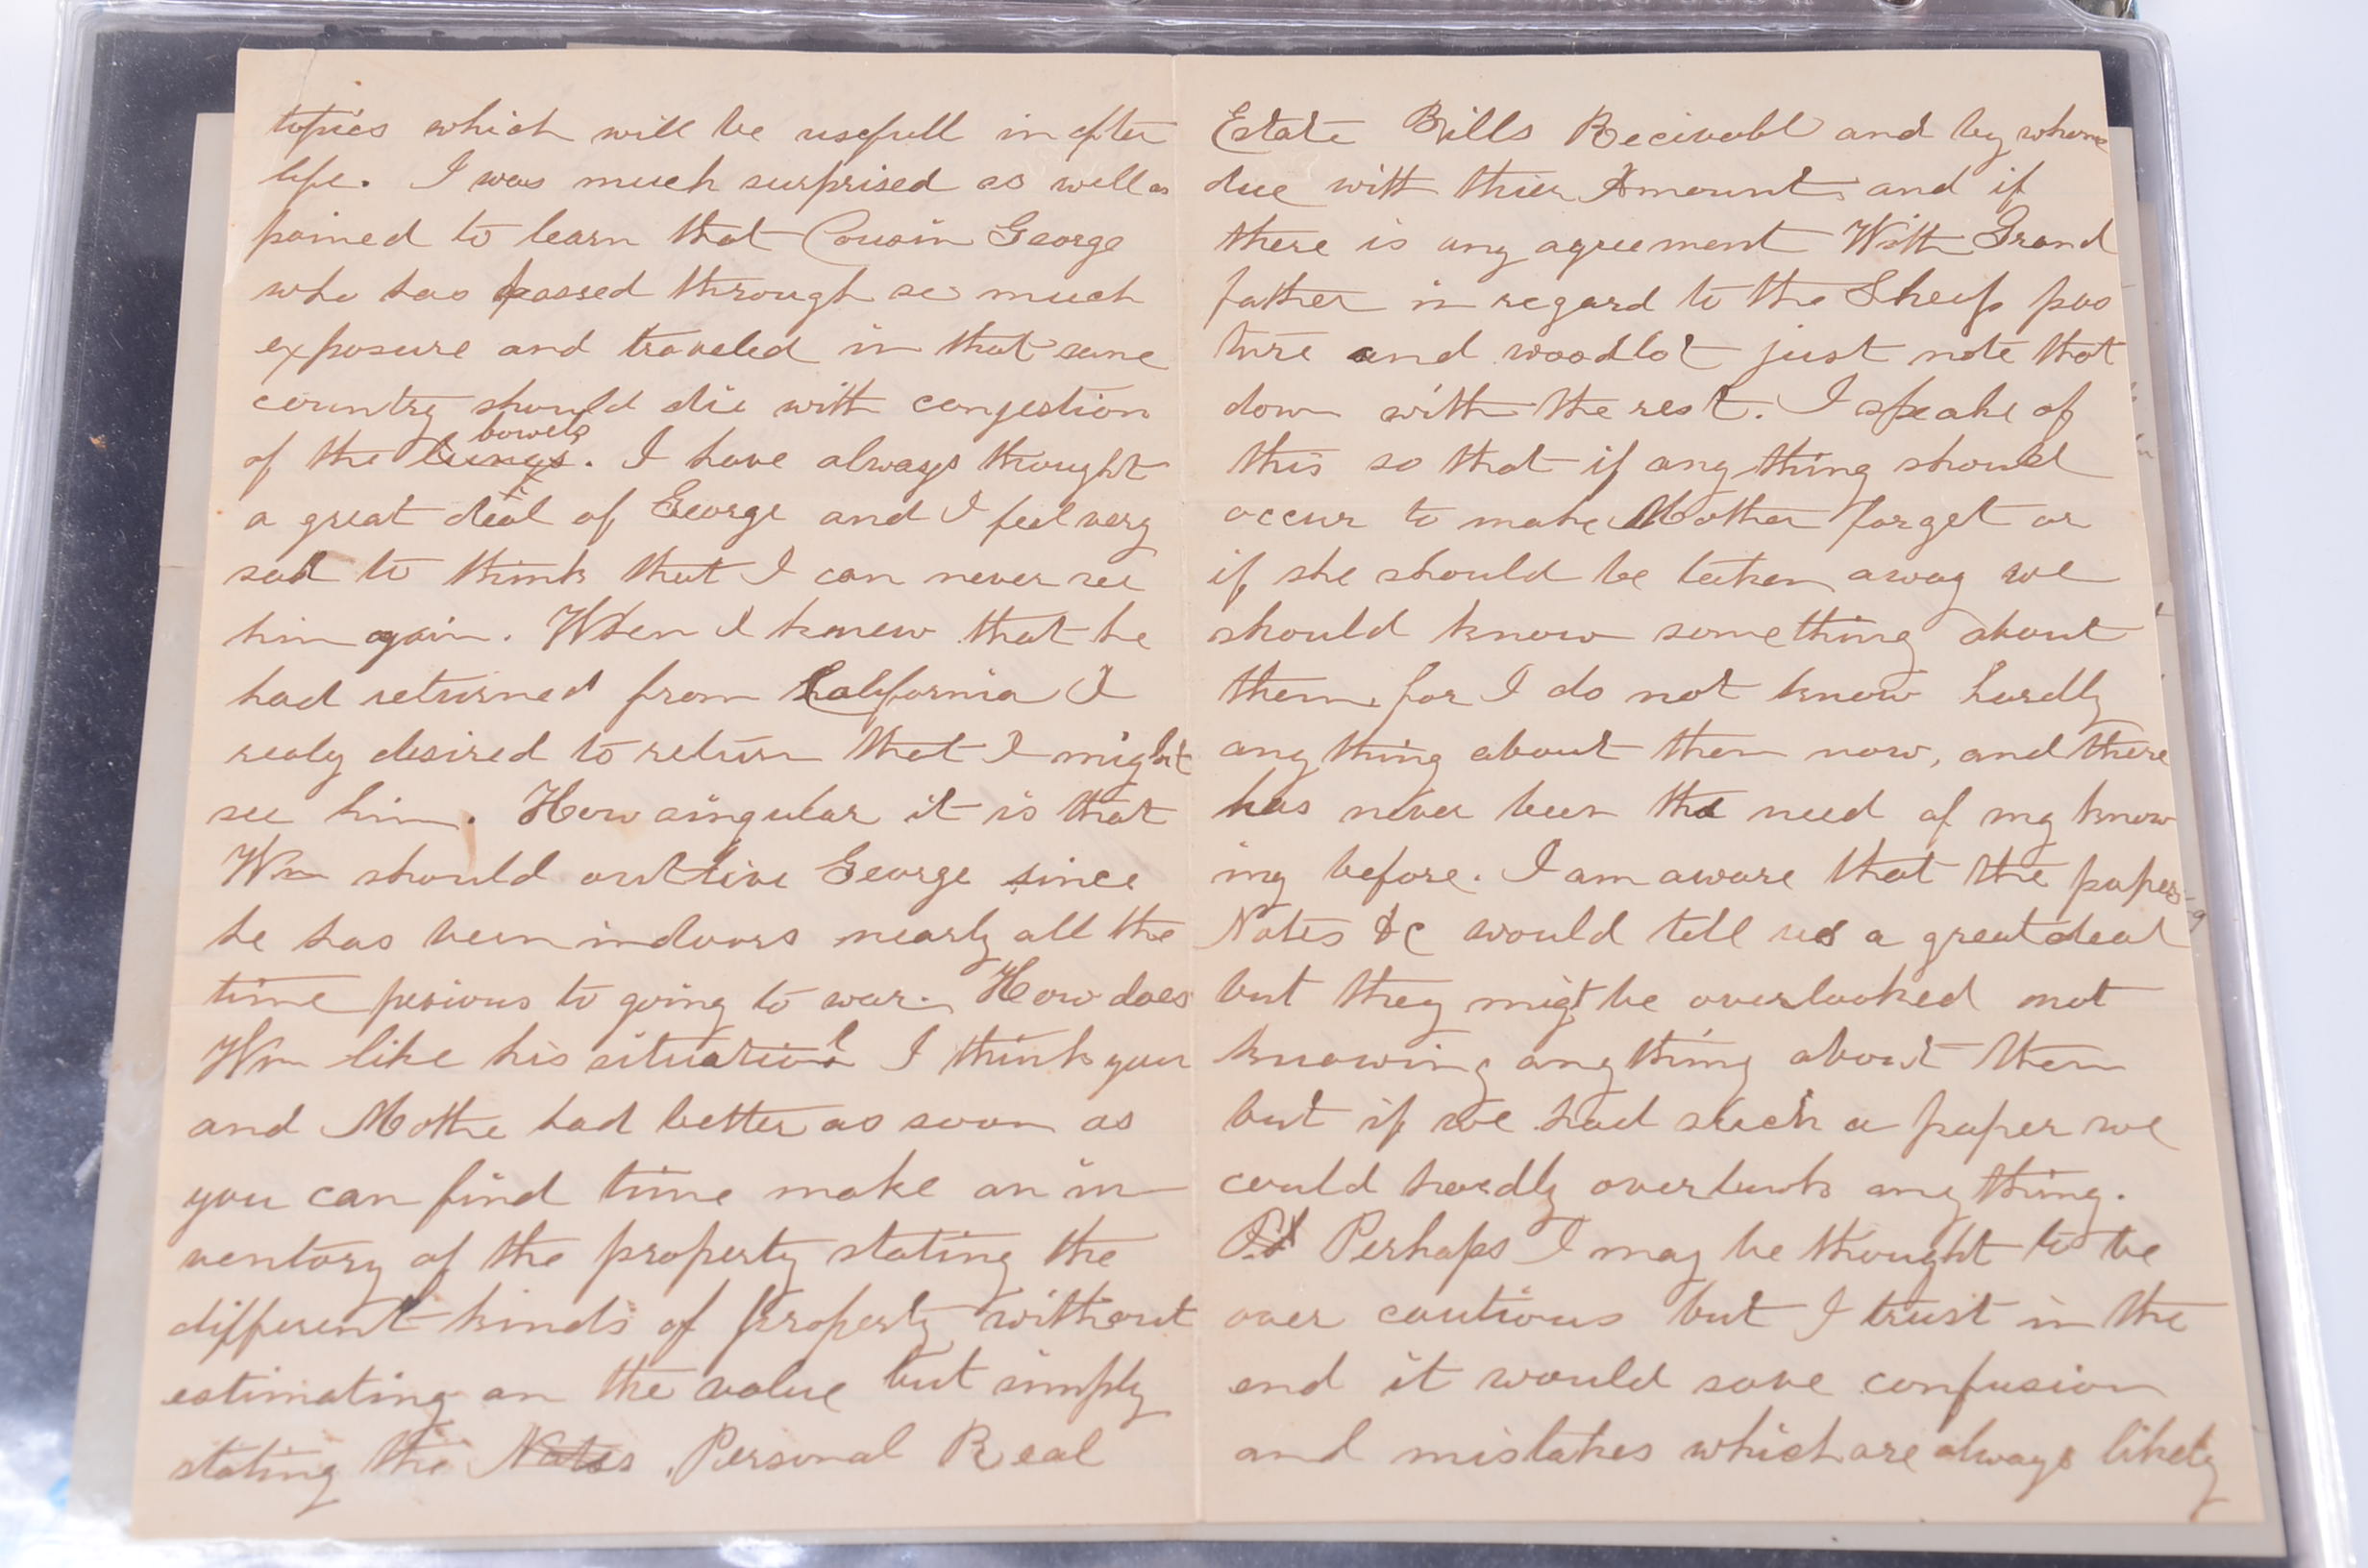 topics which will be usefull in after
life. I was much surprised as well as
pained to learn that Cousin George
who has passed through so much
exposure and traveled in that same
country should die with congestion
bowels
of the lungs. I have always thought
a great deal of George and I feel very
sad to think that I can never see
him again. When I knew that he
had returned from California I
realy desired to return that I might
see him. How singular it is that
Wm should outlive George since
he has been indoors nearly all the
time pevious to going to war. How does
Wm like his situation? I think you
and Mothe had better as soon as
you can find time make an in
ventory of the property stating the
different kinds of property without
estimating on the value but simply
stating the Notes Personal Real
Estate Bills Recivabl and by whom
due with thier Amount and if
there is any agreement With Grand
father in regard to the Sheep pas
ture and woodlot just note that
down with the rest. I speake of
this so that if any thing should
occur to make Mother forget or
if she should be taken away we
should know something about
them, for I do not know hardly
any thing about them now, and there
has never been the need of my know
ing before. I am aware that the papers
Notes &c would tell us a great deal
but they migt be overlooked not
knowing any thing about them
but if we had such a paper we
could hardly overlook any thing.
Perhaps I may be thought to be
over cautious but I trust in the
end it would save confusion
and mistakes which are always likely